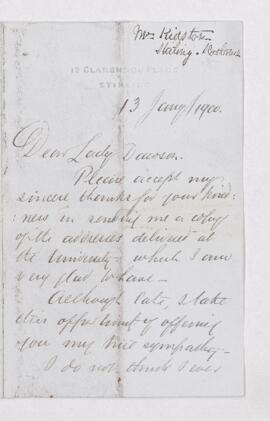 Mr Kidston
Stirling
12 CLARENDON PLACE
STIRLING
13 Jany/1900.
Dear Lady Dawson.
Please accept my
sincere thanks for your kind:
:ness in sending me a copy
of the addresses delivered at
the University - which I am
very glad to have -
Although late, I take
this opportunity of offering
you my sympathy -
I do not think I ever